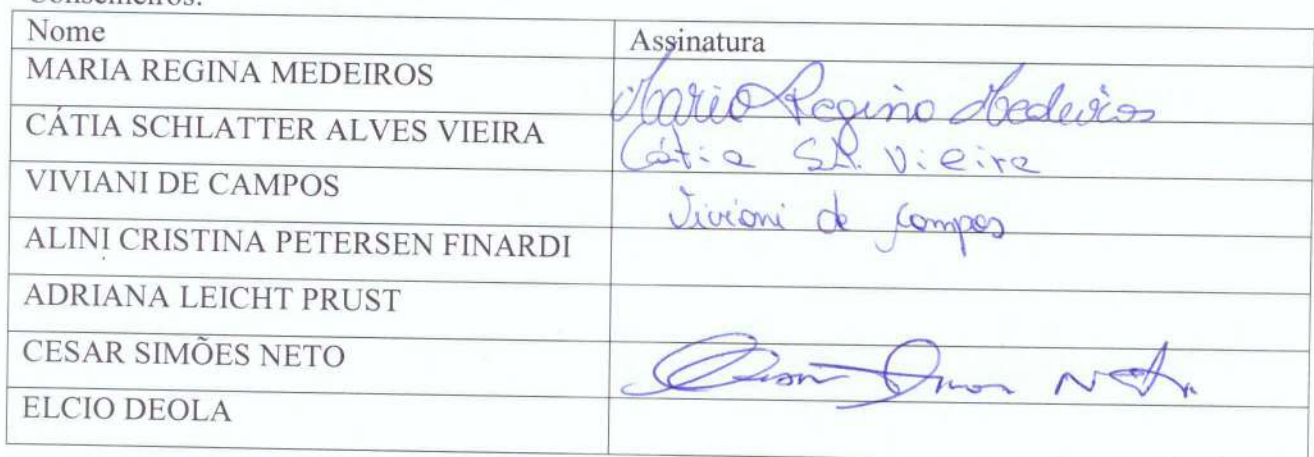 Conselheiros:
Nome Assinatura
MARIA REGINA MEDEIROS Maria Regina Medeiros
CÁTIA SCHLATTER ALVES VIEIRA Cátia SA. Vieira
VIVIANI DE CAMPOS Viviani de Campos
ALINI CRISTINA PETERSEN FINARDI
ADRIANA LEICHT PRUST
CESAR SIMÕES NETO
ELCIO DEOLA